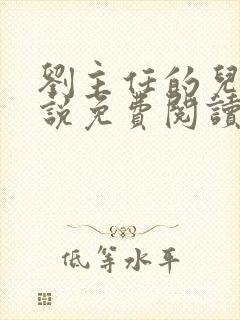 劉主任的兒
説免費閱讀
低等水平